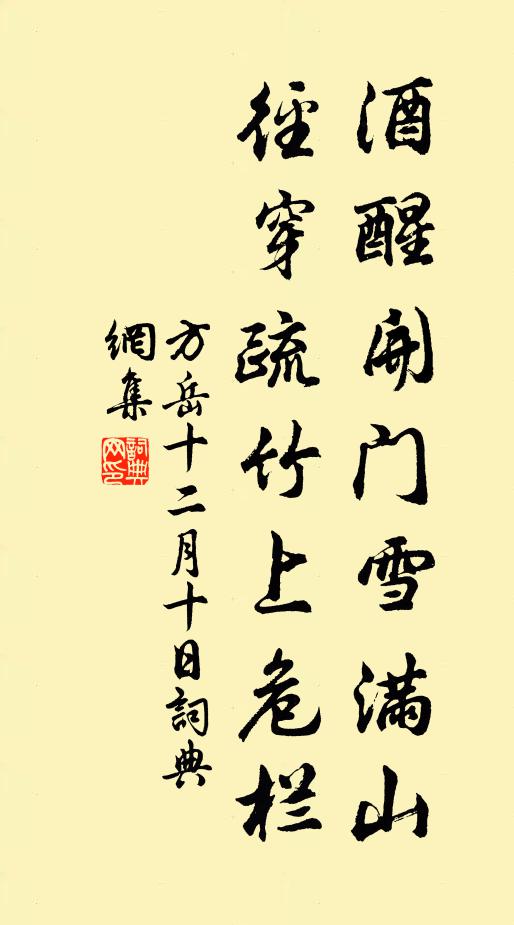 酒醒開门雪滿山
徑穿疏竹上危栏
方岳十二月十日詞典
網集
詞典网印